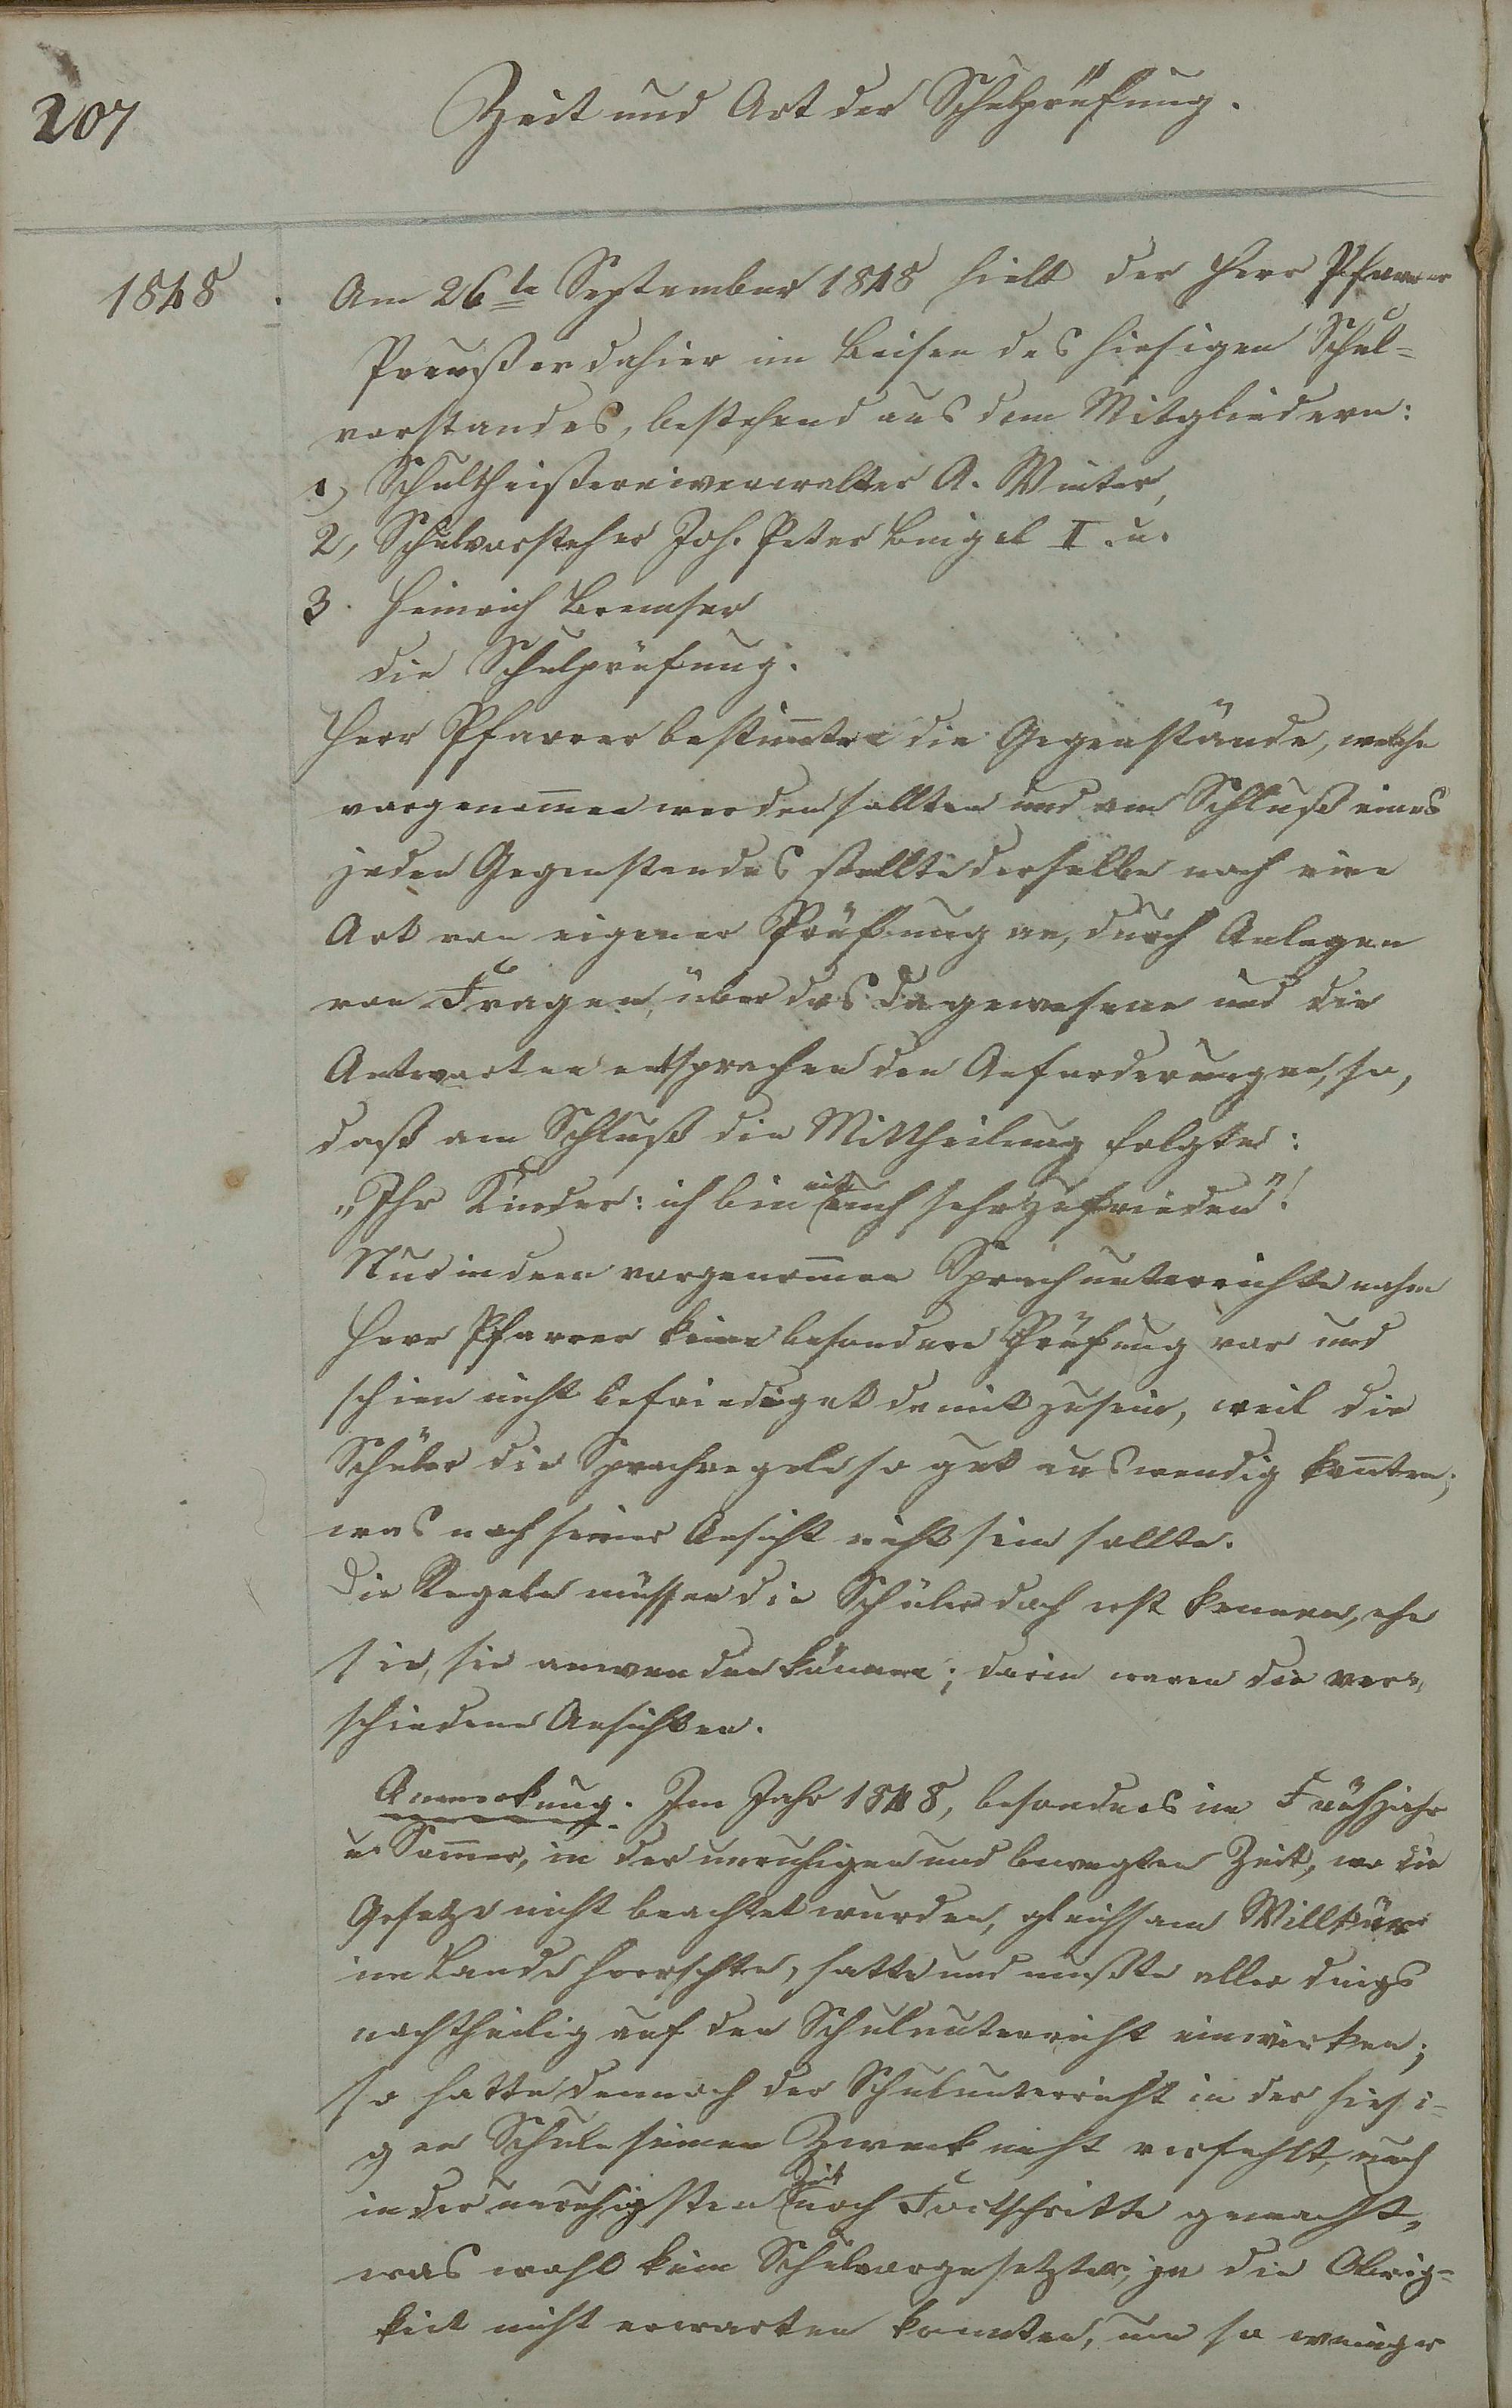 207
Zeit und Art der Schulprüfung.
1848.
Am 26te September 1848 hielt der Herr Pfarrer
Preußer dahier im Beisen des hiesigen Schul=
vorstandes, bestehend aus dem Mitgliedern:
1, Schultheißereiverwalter A. Winter,
2, Schulvorsteher Joh. Peter Bingel II. u.
3. Heinrich Bremser
die Schulprüfung.
Herr Pfarrer bestim̅te die Gegenstände, welche
vorgenom̅en werden sollten und am Schluß eines
jeden Gegenstandes stellte derselbe noch eine
Art von eigener Prüfung an, durch Anlegen
von Fragen, über das Dagewesene und die
Antworten entsprachen den Anforderungen, so,
daß am Schluß die Mittheilung folgte:
„Ihr Kinder: ich bin mit euch sehr zufrieden"!
Nur in dem vorgenom̅en Sprachunterrichte nahm
Herr Pfarrer keine besondere Prüfung vor und
schien nicht befriediget damit zu sein, weil die
Schüler die Sprachregeln so gut auswendig kon̅ten;
was nach seiner Ansicht nicht sein sollte.
Die Regeln müssen die Schüler doch erst kennen, ehe
sie, sie anwenden können; darin waren die ver=
schiedene Ansichten.
Anmerkung. Im Jahr 1848, besonders im Frühjahr
u. Som̅er, in der unruhigen und bewegten Zeit, wo die
Gesetze nicht beachtet wurden, gleichsam Willkür
im Lande herrschte, hatte und mußte aller dings
nachtheilig auf den Schulunterricht einwirken;
so hatte dennoch der Schulunterricht in der hiesi=
gen Schule seinen Zweck nicht verfehlt, auch
in der unruhigsten Zeit noch Fortschritte gemacht,
was wohl kein Schulvorgesetzter, ja die Obrig=
keit nicht erwarten konnten, um so weniger